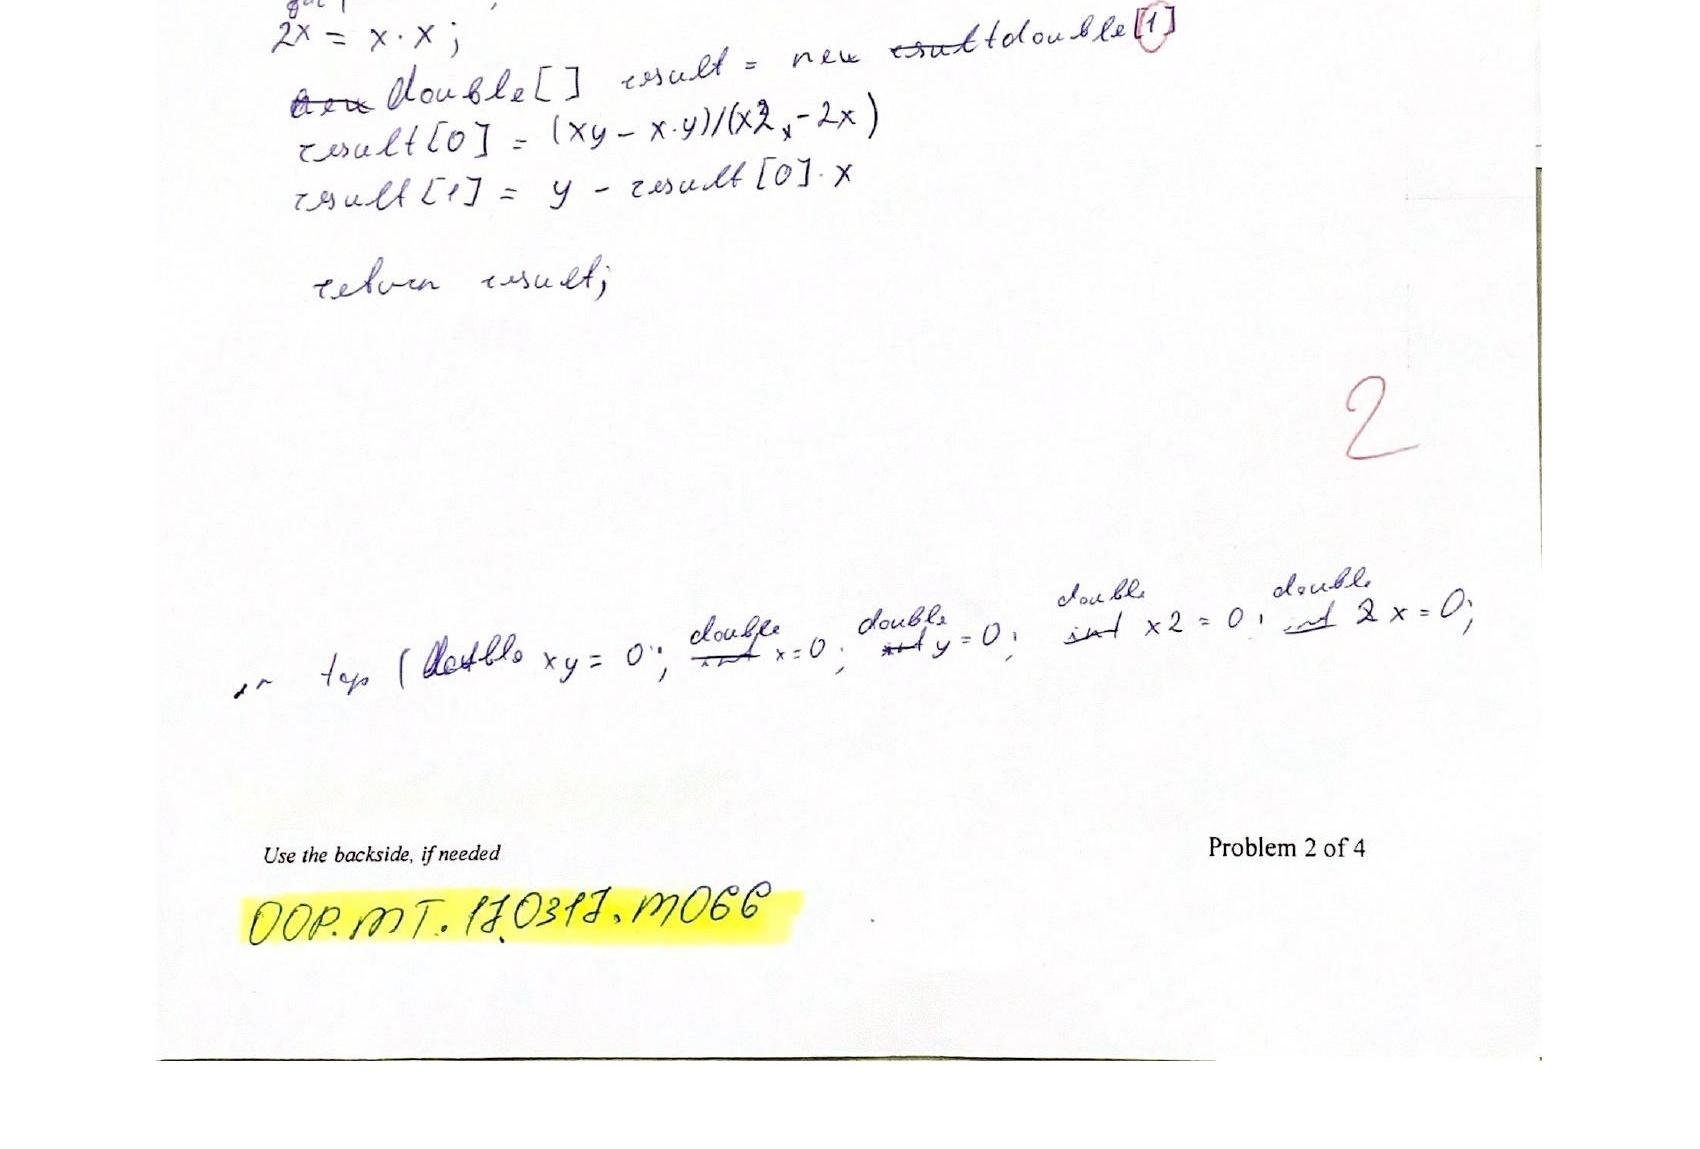 2x = x·x;
double[] result = new double[1]
result[0] = (xy - x·y)/(x2 - 2x)
result[1] = y - result[0]·x
return result;
2
double double double double
double xy = 0; int x=0; int y=0; int x2=0; int 2x=0;
Use the backside, if needed
Problem 2 of 4
OOP.MT.170317.M066